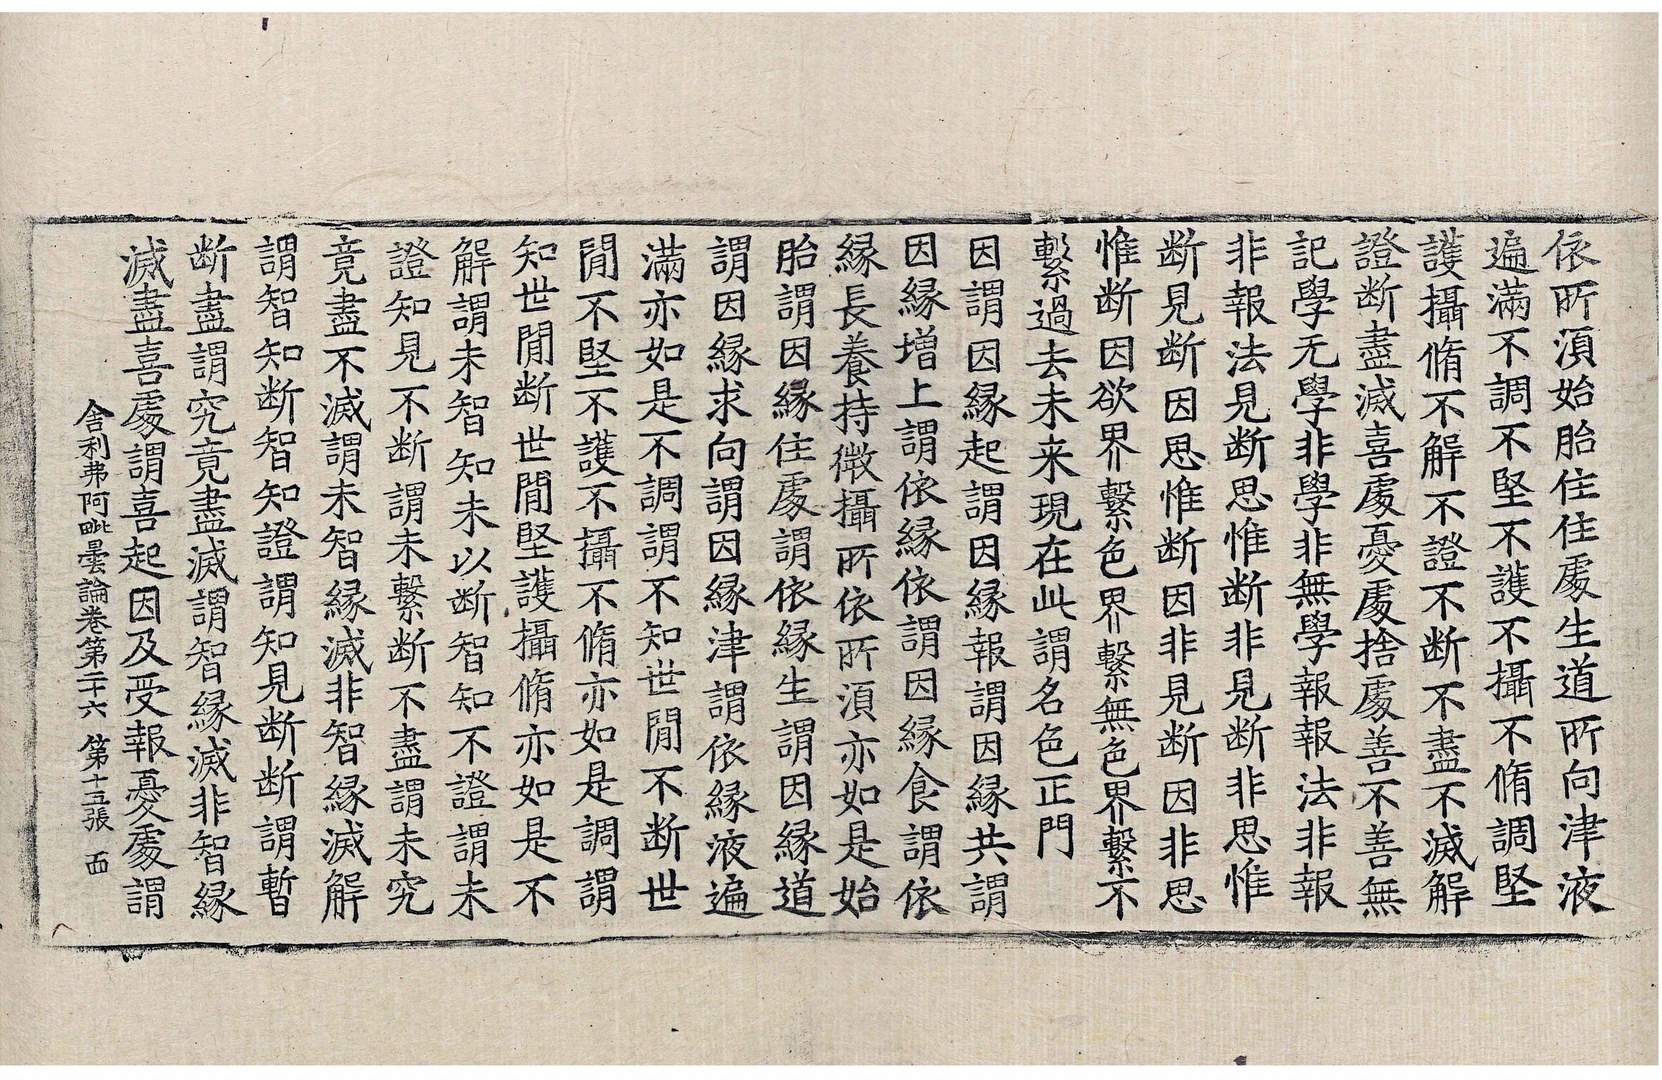 依所湏始胎住住處生道所向津液
遍滿不調不堅不護不攝不脩調堅
護攝脩不解不證不断不盡不滅解
證断盡滅喜處憂處捨處善不善無
記學无學非學非無學報報法非報
非報法見断思惟断非見断非思惟
断見断因思惟断因非見断因非思
惟断因欲界繫色界繫無色界繫不
繫過去未来現在此謂名色正門
因謂因緣起謂因緣報謂因緣共謂
因緣增上謂依緣依謂因緣食謂依
緣長養持微攝所依所湏亦如是始
胎謂因緣住處謂依緣生謂因緣道
謂因緣求向謂因緣津謂依緣液遍
滿亦如是不調謂不知世閒不断世
閒不堅不護不攝不脩亦如是調謂
知世閒断世閒堅護攝脩亦如是不
解謂未智知未以断智知不證謂未
證知見不断謂未繫断不盡謂未究
竟盡不滅謂未智緣滅非智緣滅解
謂智知断智知證謂知見断断謂暫
断盡謂究竟盡滅謂智緣滅非智緣
滅盡喜處謂喜起因及受報憂處謂
舍利弗阿毗曇論卷第二十六 第十五張 靣